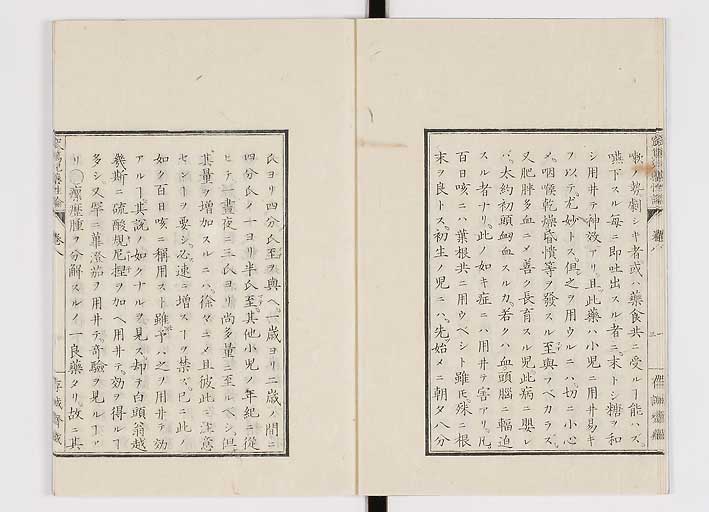 嗽ノ勢劇シキ者或ハ藥食共ニ受ルヿ能ハズ
嚥下スル每ニ即吐出スル者ニ末トシ糖ヲ和
シ用井テ神效アリ且此藥ハ小兒ニ用井易キ
ヲ以テ尤妙トス但之ヲ用ウルニハ切ニ小心
メ咽喉乾燥昏憒等ヲ發スル至與フベカラズ
又肥胖多血ニメ善ク長育スル兒此病ニ嬰レ
バ太約初頭衄血スルカ若クハ血頭腦ニ輻迫
スル者ナリ此ノ如キ症ニハ用井テ害アリ凡
百日咳ニハ葉根共ニ用ウベシト雖𪜈殊ニ根
末ヲ良トス初生ノ兒ニハ先始メニ朝夕八分
氏ヨリ四分氏至ヲ與ヘ一歲ヨリ二歲ノ間ニ
四分氏ノ一ヨリ半氏至其他小兒ノ年紀ニ從
ヒテ一晝夜ニ三氏ヨリ尚多量ニ至ルベシ但
其量ヲ增加スルニハ徐々ニメ且彼此ニ注意
センヿヲ要シ必速ニ增スヿヲ禁ズ已ニ此ノ
如ク百日咳ニ稱用スト雖予ハ之ヲ用井テ效
アルヿ其說ノ如クナルヲ見ス却テ白頭翁越
幾斯ニ硫酸規尼捏ヲ加ヘ用井テ效ヲ得ルヿ
多シ又單ニ華澄茄ヲ用井テ奇驗ヲ見ルヿア
リ○瘰癧腫ヲ分解スルノ一良藥タリ故ニ其
藥性論
卷八